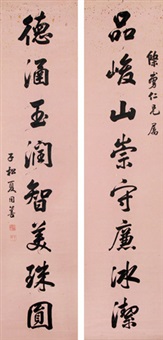 滌齋仁兄屬
品峻山崇守廉冰潔
德涵玉潤智美珠圓
子松夏同善